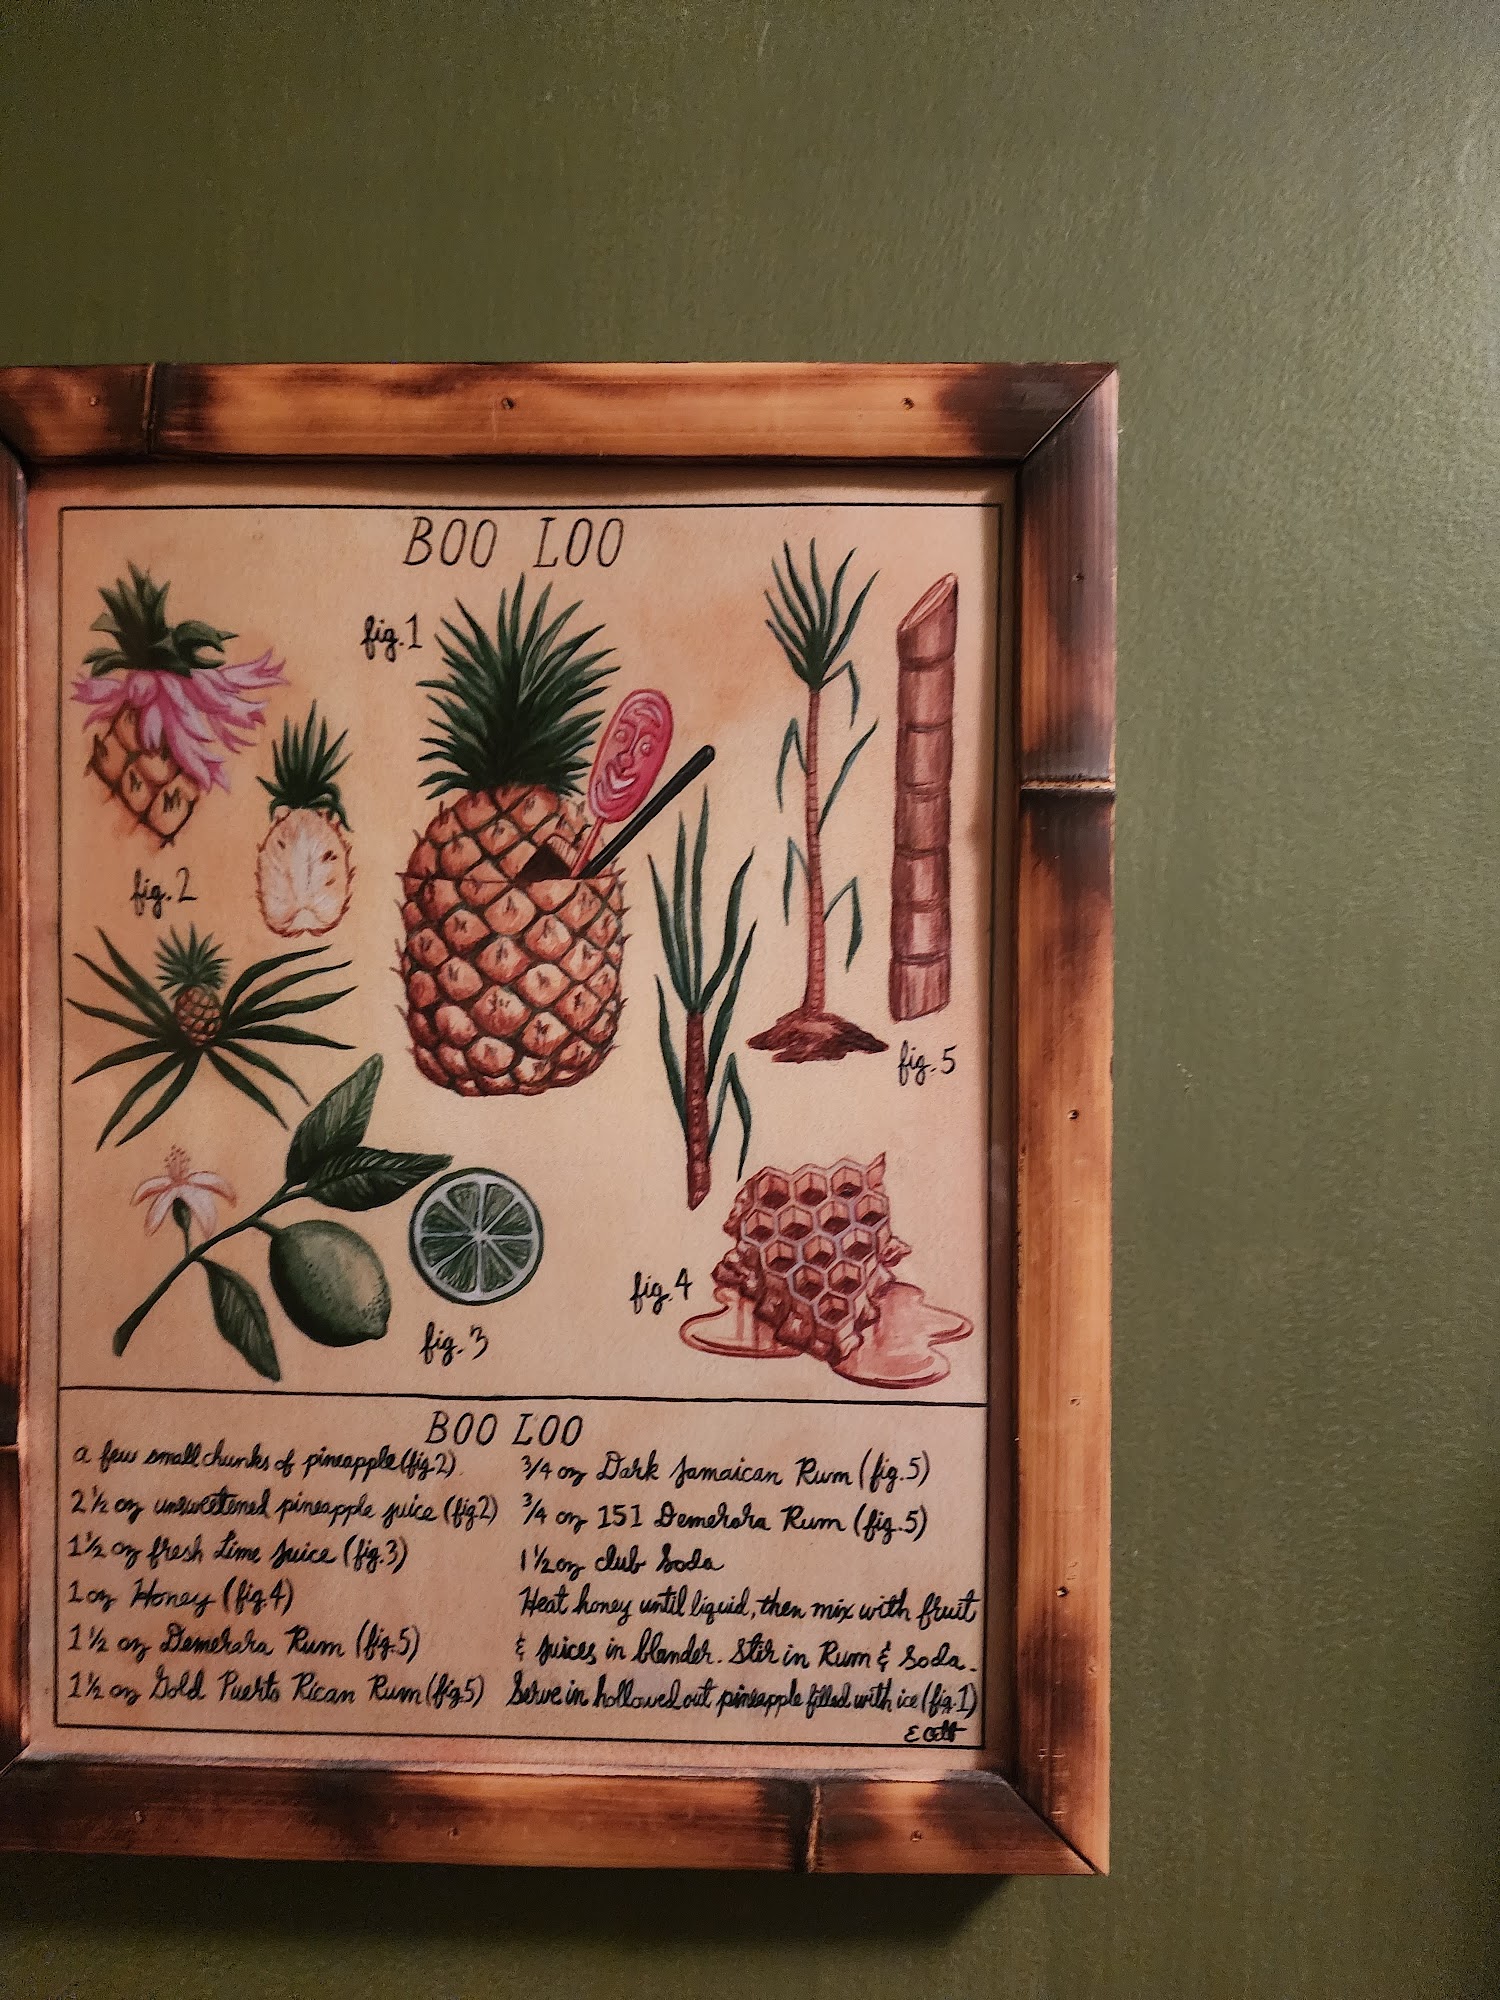 BOO LOO
fig. 1
fig. 2
fig. 5
fig. 4
fig. 3
BOO LOO
a few small chunks of pineapple (fig 2)
2 1/2 oz unsweetened pineapple juice (fig 2)
1 1/2 oz fresh Lime Juice (fig. 3)
1 oz Honey (fig. 4)
1 1/2 oz Demerara Rum (fig. 5)
1 1/2 oz Gold Puerto Rican Rum (fig. 5)
3/4 oz Dark Jamaican Rum (fig. 5)
3/4 oz 151 Demerara Rum (fig. 5)
1 1/2 oz club Soda
Heat honey until liquid, then mix with fruit
& juices in blender. Stir in Rum & Soda.
Serve in hollowed out pineapple filled with ice (fig. 1)